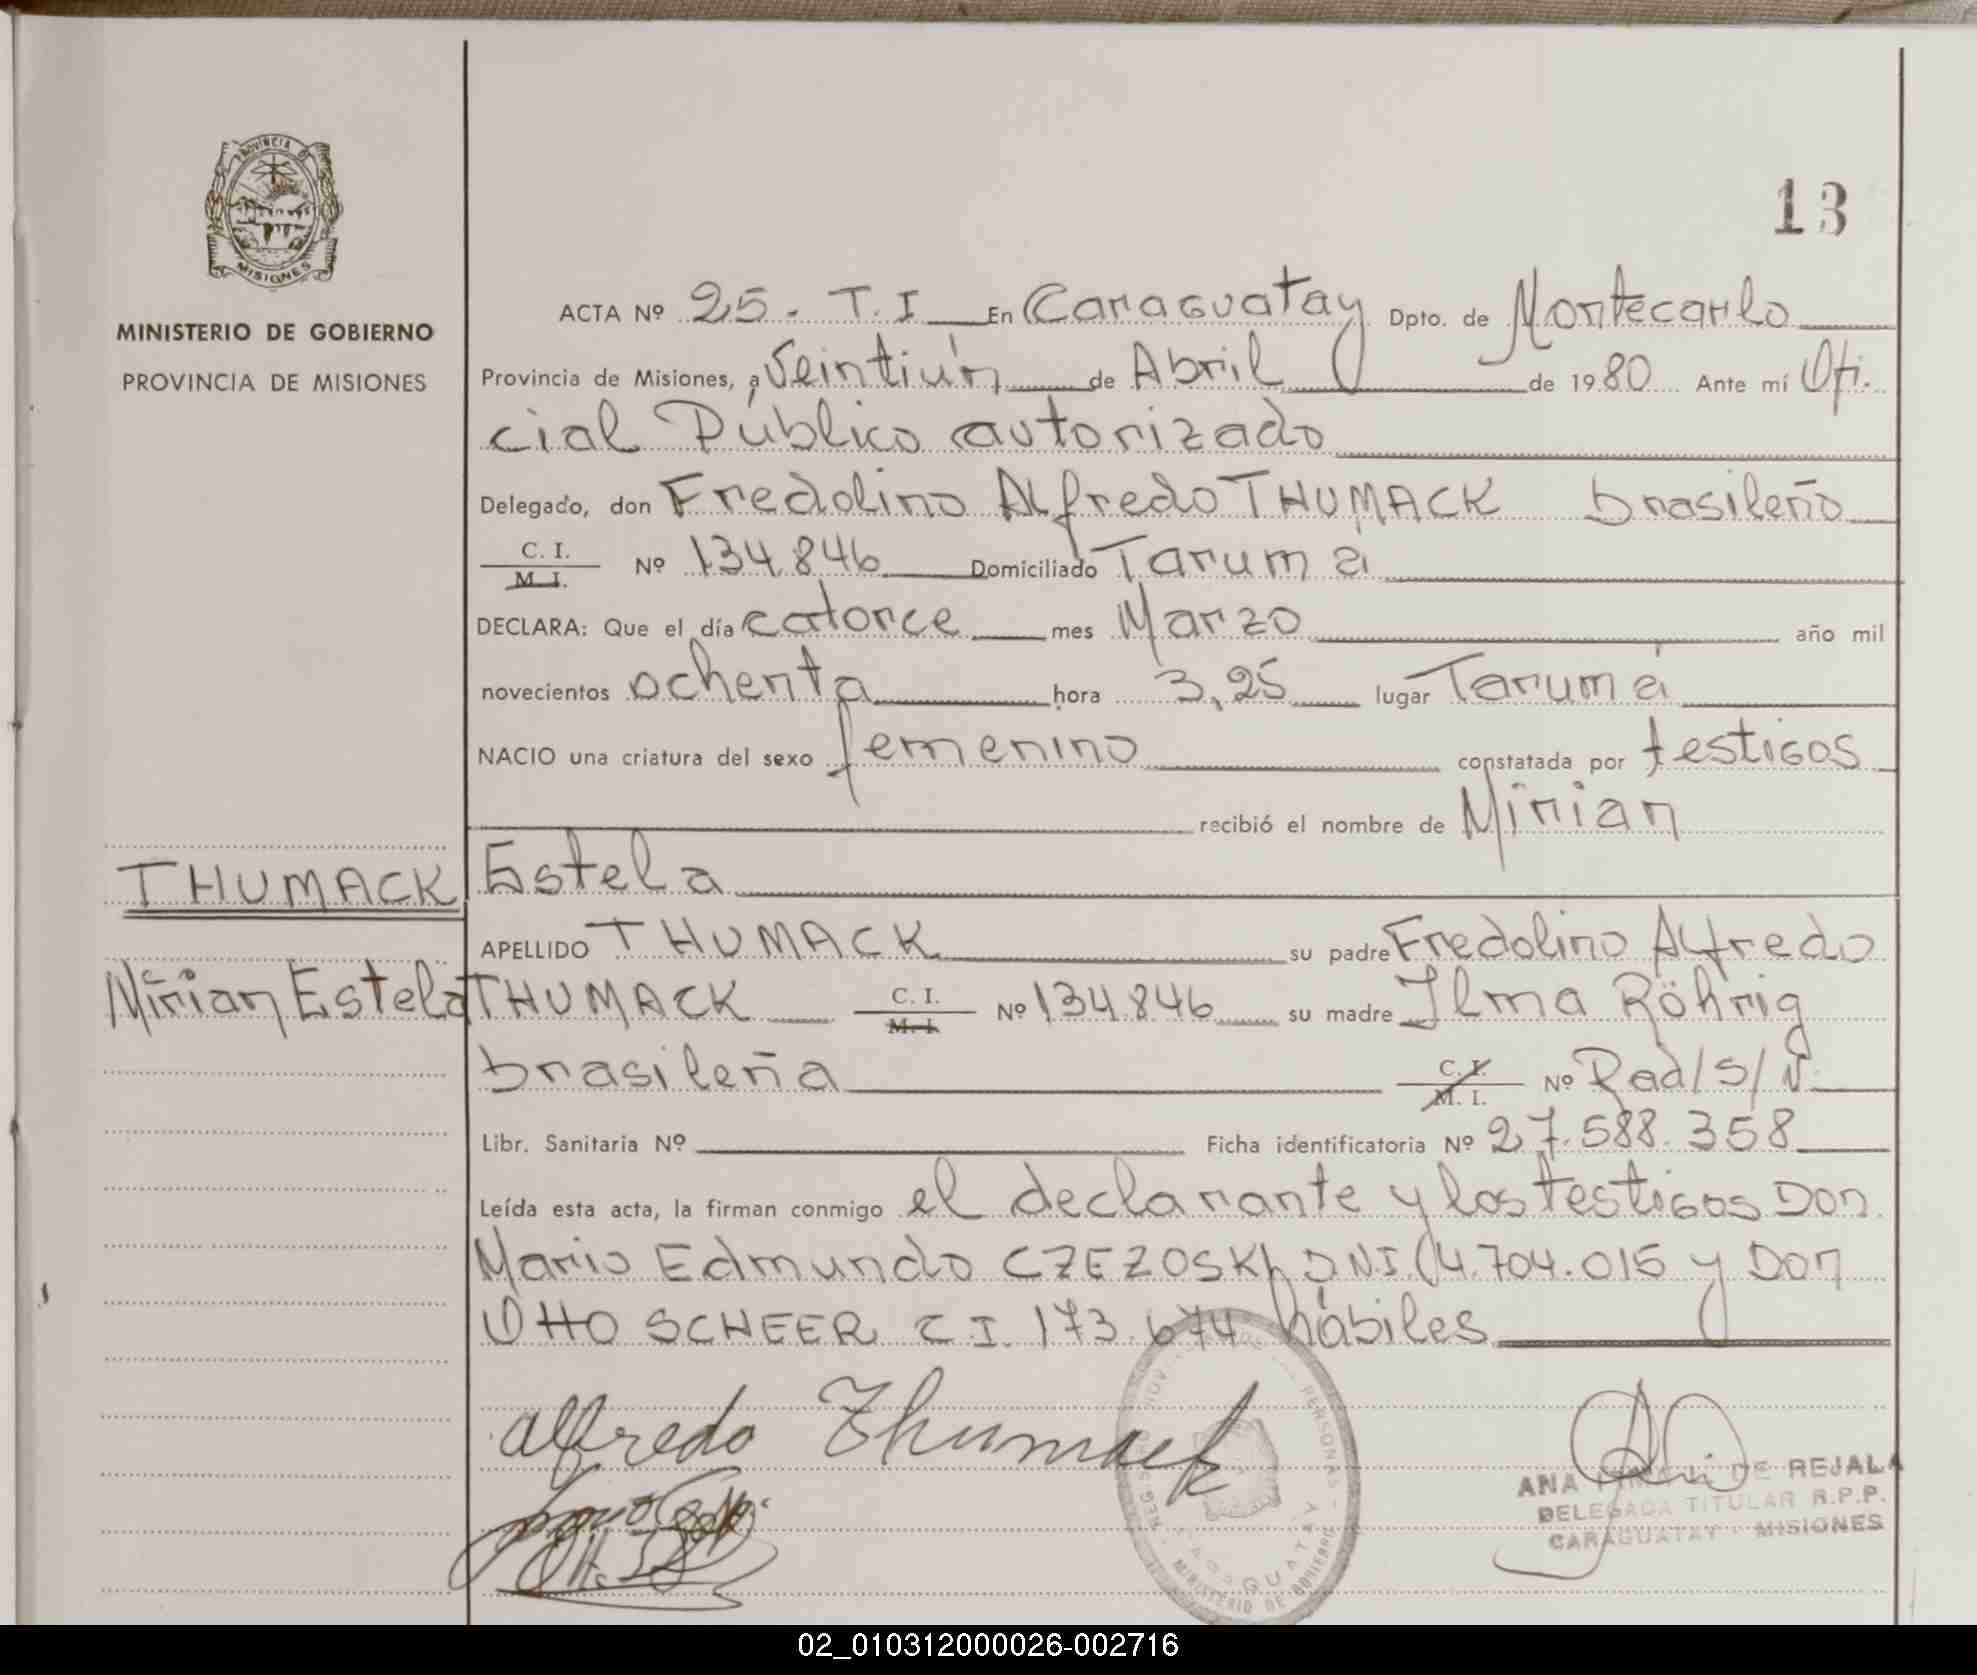 PROVINCIA D
MISIONES
MINISTERIO DE GOBIERNO
PROVINCIA DE MISIONES
13
ACTA Nº 25. T.I En Caraguatay Dpto. de Montecarlo
Provincia de Misiones, a Veintiún de Abril de 1980 Ante mí Ofi.
cial Público autorizado
Delegado, don Fredolino Alfredo THUMACK brasileño
C. I. M. I. Nº 134.846 Domiciliado Tarumá
DECLARA: Que el día catorce mes Marzo año mil
novecientos ochenta hora 3,25 lugar Tarumá
NACIO una criatura del sexo femenino constatada por testigos
recibió el nombre de Mirian
THUMACK Estela
APELLIDO THUMACK su padre Fredolino Alfredo
Mirian Estela THUMACK C. I. M. I. Nº 134.846 su madre Ilma Röhrig
brasileña C. I. M. I. Nº Rad/S/N.
Libr. Sanitaria Nº Ficha identificatoria Nº 27.588.358
Leída esta acta, la firman conmigo el declarante y los testigos Don
Mario Edmundo CZEZOSKI, DNI. 14.704.015 y Don
OTTO SCHEER C I. 173.674 hábiles
alfredo Thumack
ANA DE REJALA
DELEGADA TITULAR R.P.P.
CARAGUATAY - MISIONES
PERSONAS
CARAGUATAY
MINISTERIO DE GOBIERNO
02_010312000026-002716